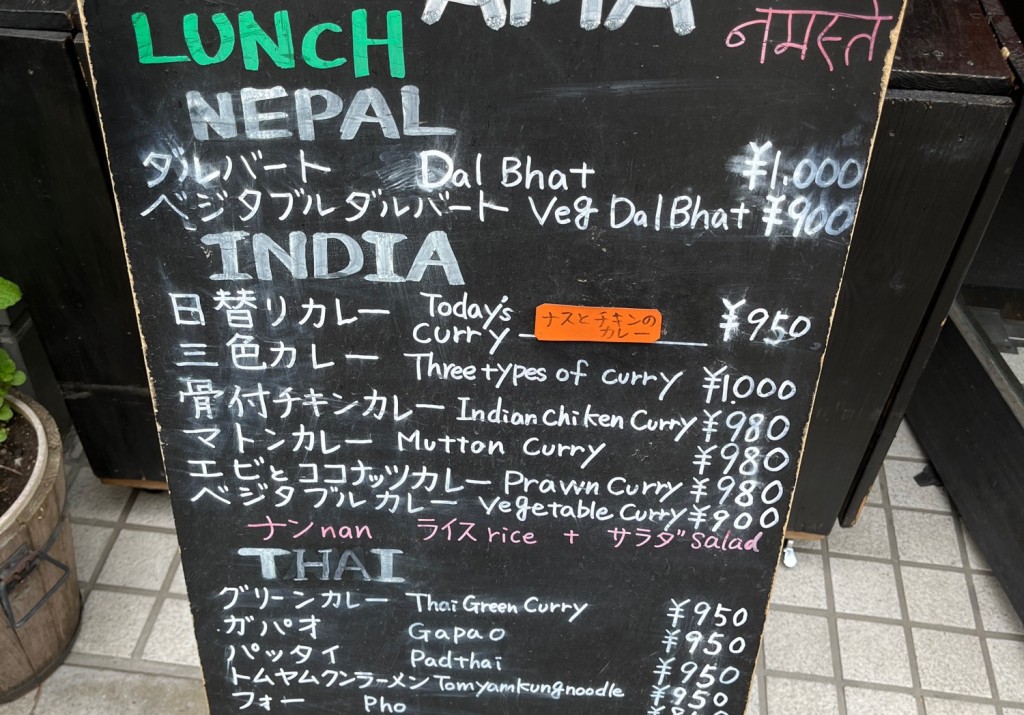 AMA
LUNCH नमस्ते
NEPAL
ダルバート Dal Bhat ¥1,000
ベジタブルダルバート Veg DalBhat ¥900
INDIA
日替りカレー Today's curry ナスとチキンのカレー ¥950
三色カレー Three types of curry ¥1000
骨付チキンカレー Indian Chiken Curry ¥980
マトンカレー Mutton Curry ¥980
エビとココナッツカレー Prawn Curry ¥980
ベジタブルカレー Vegetable Curry ¥900
ナン nan ライス rice + サラダ salad
THAI
グリーンカレー Thai Green Curry ¥950
ガパオ Gapao ¥950
パッタイ Padthai ¥950
トムヤムクンラーメン Tomyamkungnoodle ¥950
フォー Pho